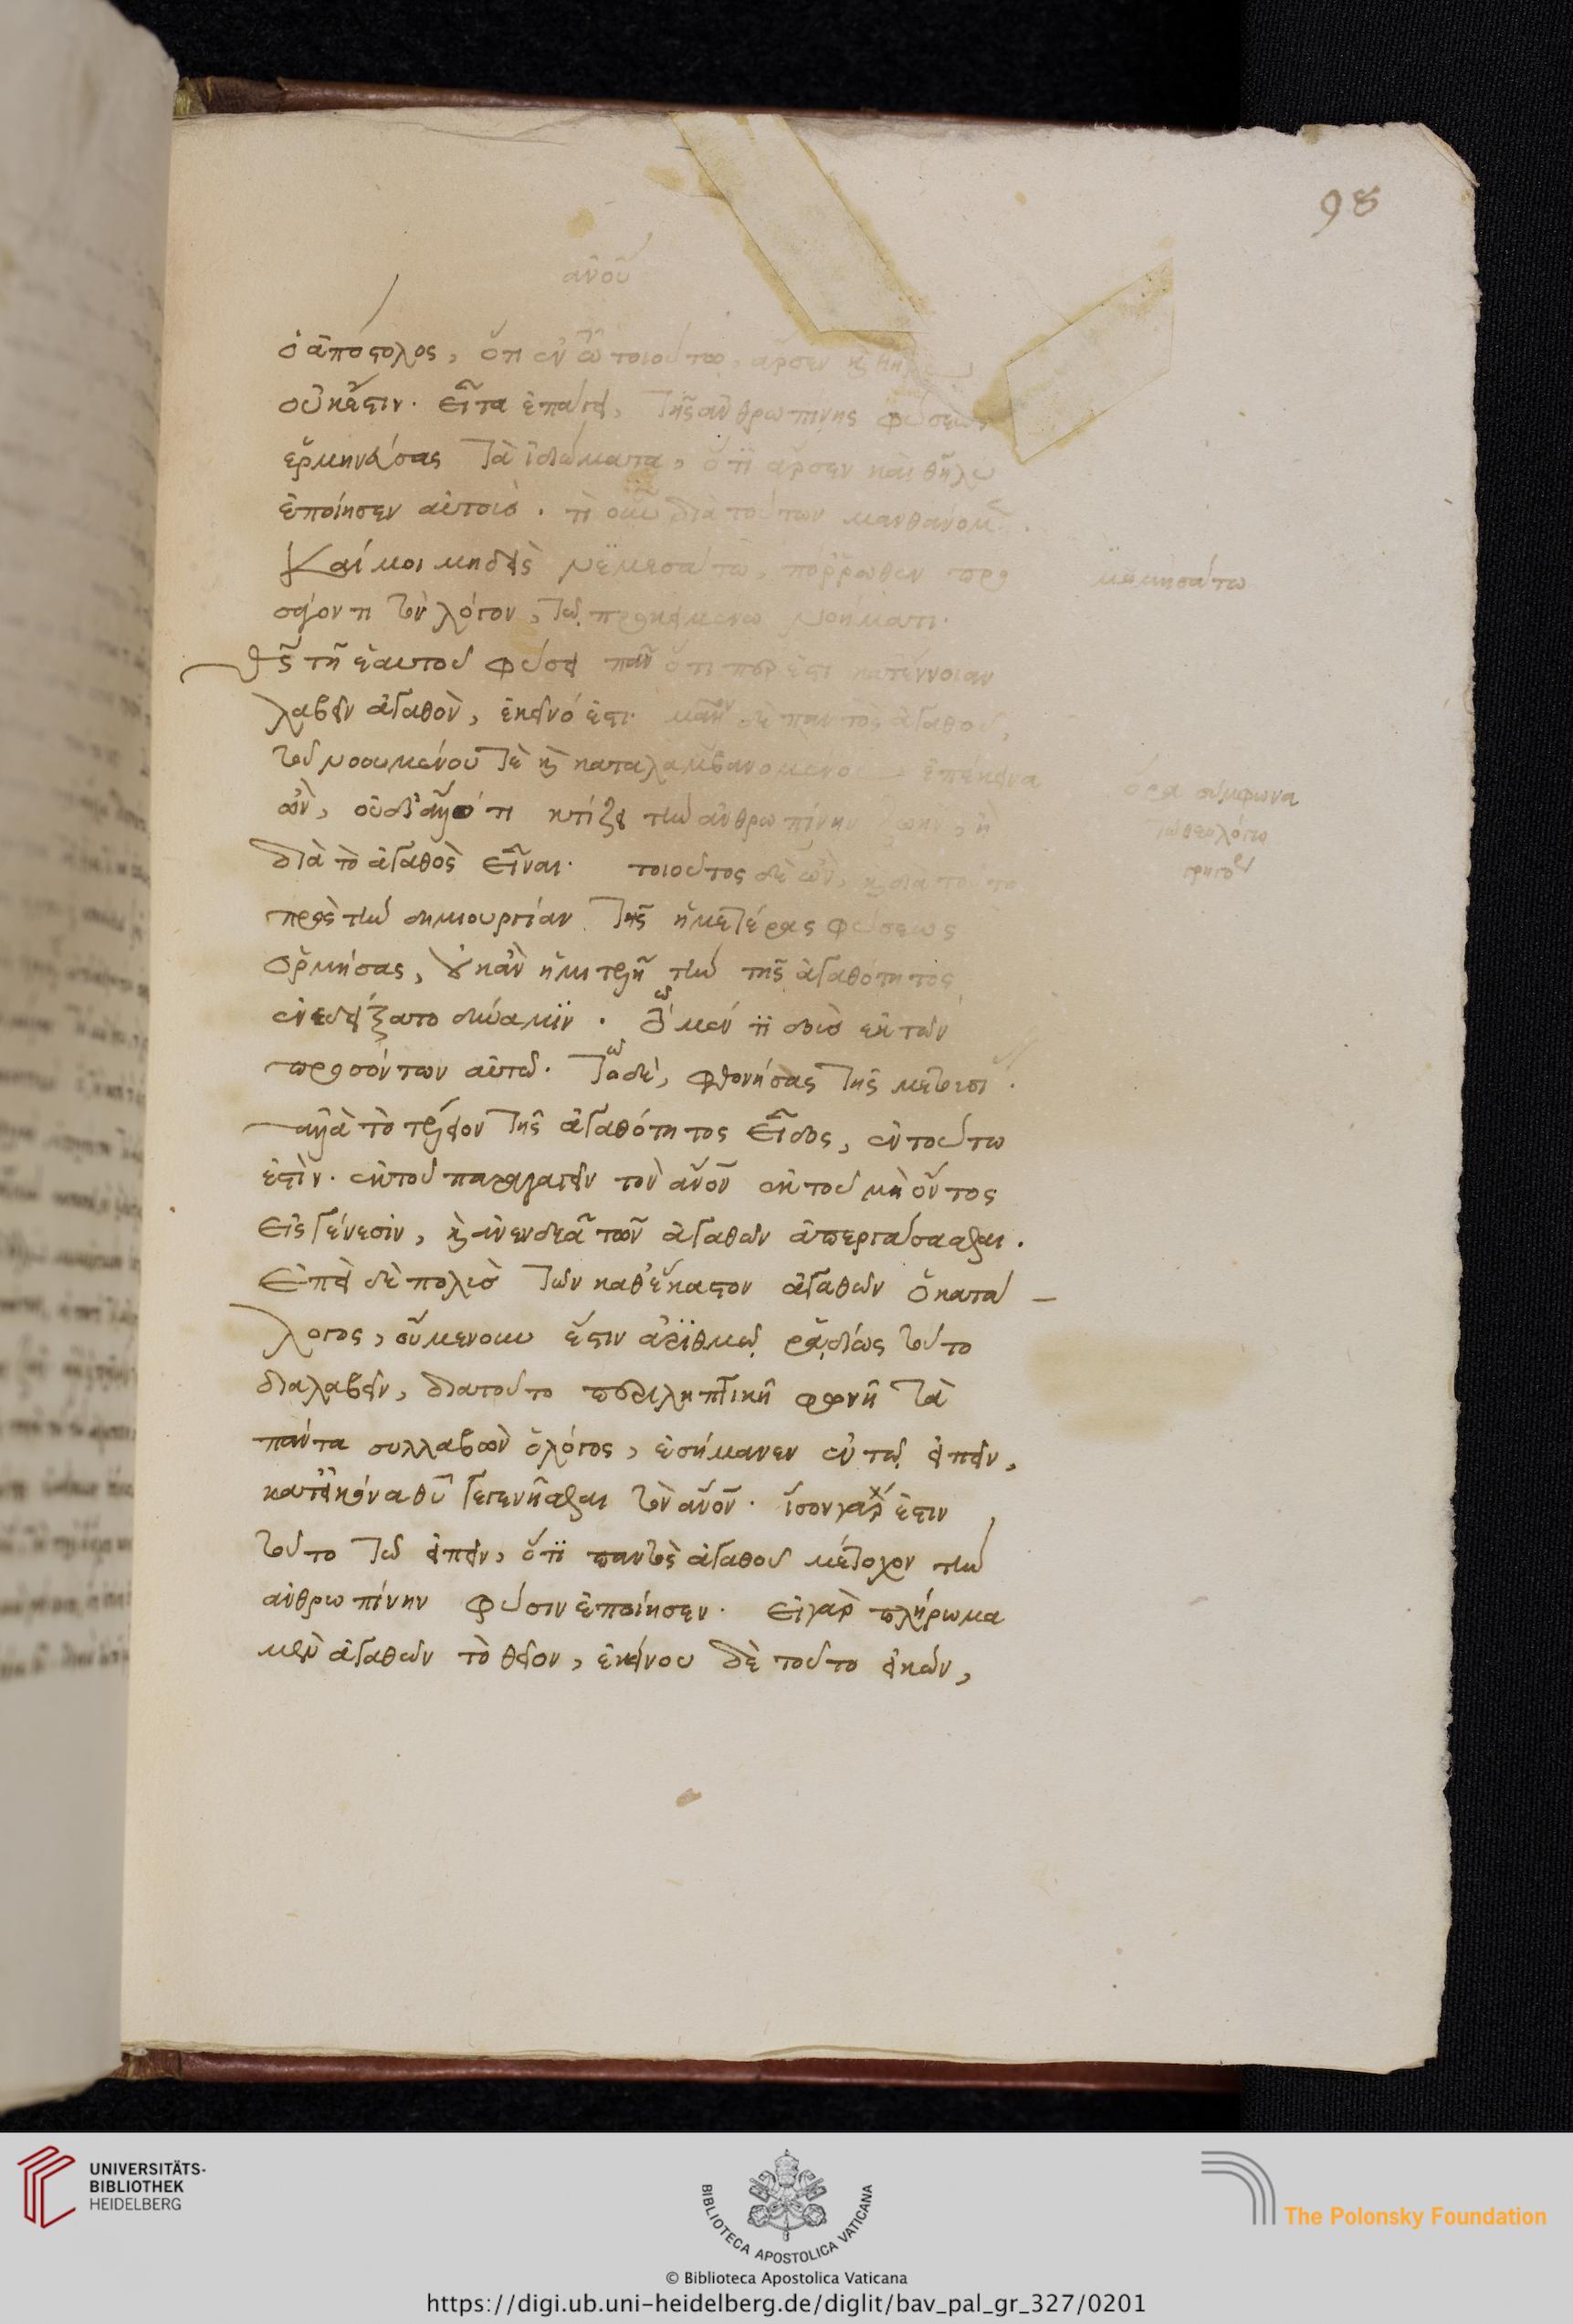 98
ἀνοῦ
ὁ ἀπόστολος, ὅτι ἐν ᾧ τοιούτω, ἄρσεν κ θῆλυ
οὐκέστιν. εἶτα ἐπάγει, τῆς ἀνθρωπίνης φύσεως
ἑρμηνεύσας τὰ ἰδιώματα, ὅτι ἄρσεν καὶ θῆλυ
ἐποίησεν αὐτούς. τί οὖν διὰ τούτων μανθάνομ
Καί μοι μηδεὶς νεμεσάτω, πόρρωθεν προσ
άγοντι τὸν λόγον, τῷ προκειμένω νοήματι.
Θς τῆ ἑαυτοῦ φύσει πᾶν ὅτι πέρ ἐστι κατέννοιαν
λαβεῖν ἀγαθὸν, ἐκεῖνό ἐστι. παντὸς ἀγαθοῦ,
τοῦ νοουμένου τὲ κ καταλαμβανομένου ἐπέκεινα
ὢν, οὐδἄλλό τι κτίζει τὴν ἀνθρωπίνην ζωὴν, ἢ
διὰ τὸ ἀγαθὸς εἶναι. τοιοῦτος δὲ ὢν, κ διατοῦτο
πρὸς τὴν δημιουργίαν τῆς ἡμετέρας φύσεως
ὁρμήσας, οὐκἂν ἡμιτελῆ τὴν τῆς ἀγαθότητος
ἐνεδείξατο δύναμιν. τὸ μέν τι δοὺς ἐκ τῶν
προσόντων αὐτῶ. τοῦ δὲ, φθονήσας τῆς μετουσί.
ἀλλὰ τὸ τέλειον τῆς ἀγαθότητος εἶδος, ἐν τούτω
ἐστὶν. ἐκ τοῦ παραγαγεῖν τὸν ἀνον ἐκ τοῦ μὴ ὄντος
εἰς γένεσιν, κ ἀνενδεᾶ τῶν ἀγαθῶν ἀπεργάσασθαι.
Ἐπεὶ δὲ πολὺς τῶν καθἕκαστον ἀγαθῶν ὁ κατά
λογος, οὐμενουν ἔστιν ἀριθμῷ ῥᾳδίως τοῦτο
διαλαβεῖν, διατοῦτο περιληπτικῆ φωνῆ τὰ
πάντα συλλαβὼν ὁ λόγος, ἐσήμανεν ἐν τῷ εἰπεῖν,
κατεἰκόνα θυ γεγενῆσθαι τὸν ἀνον. ἴσον γάρ ἐστιν
τοῦτο τῶ εἰπεῖν, ὅτι παντὸς ἀγαθοῦ μέτοχον τὴν
ἀνθρωπίνην φύσιν ἐποίησεν. εἰ γὰρ πλήρωμα
μὲν ἀγαθῶν τὸ θεῖον, ἐκείνου δὲ τοῦτο εἰκών,
ὅρα σύμφωνα
τῶ θεολόγω
UNIVERSITÄTS-
BIBLIOTHEK
HEIDELBERG
BIBLIOTECA APOSTOLICA VATICANA
© Biblioteca Apostolica Vaticana
The Polonsky Foundation
https://digi.ub.uni-heidelberg.de/diglit/bav_pal_gr_327/0201